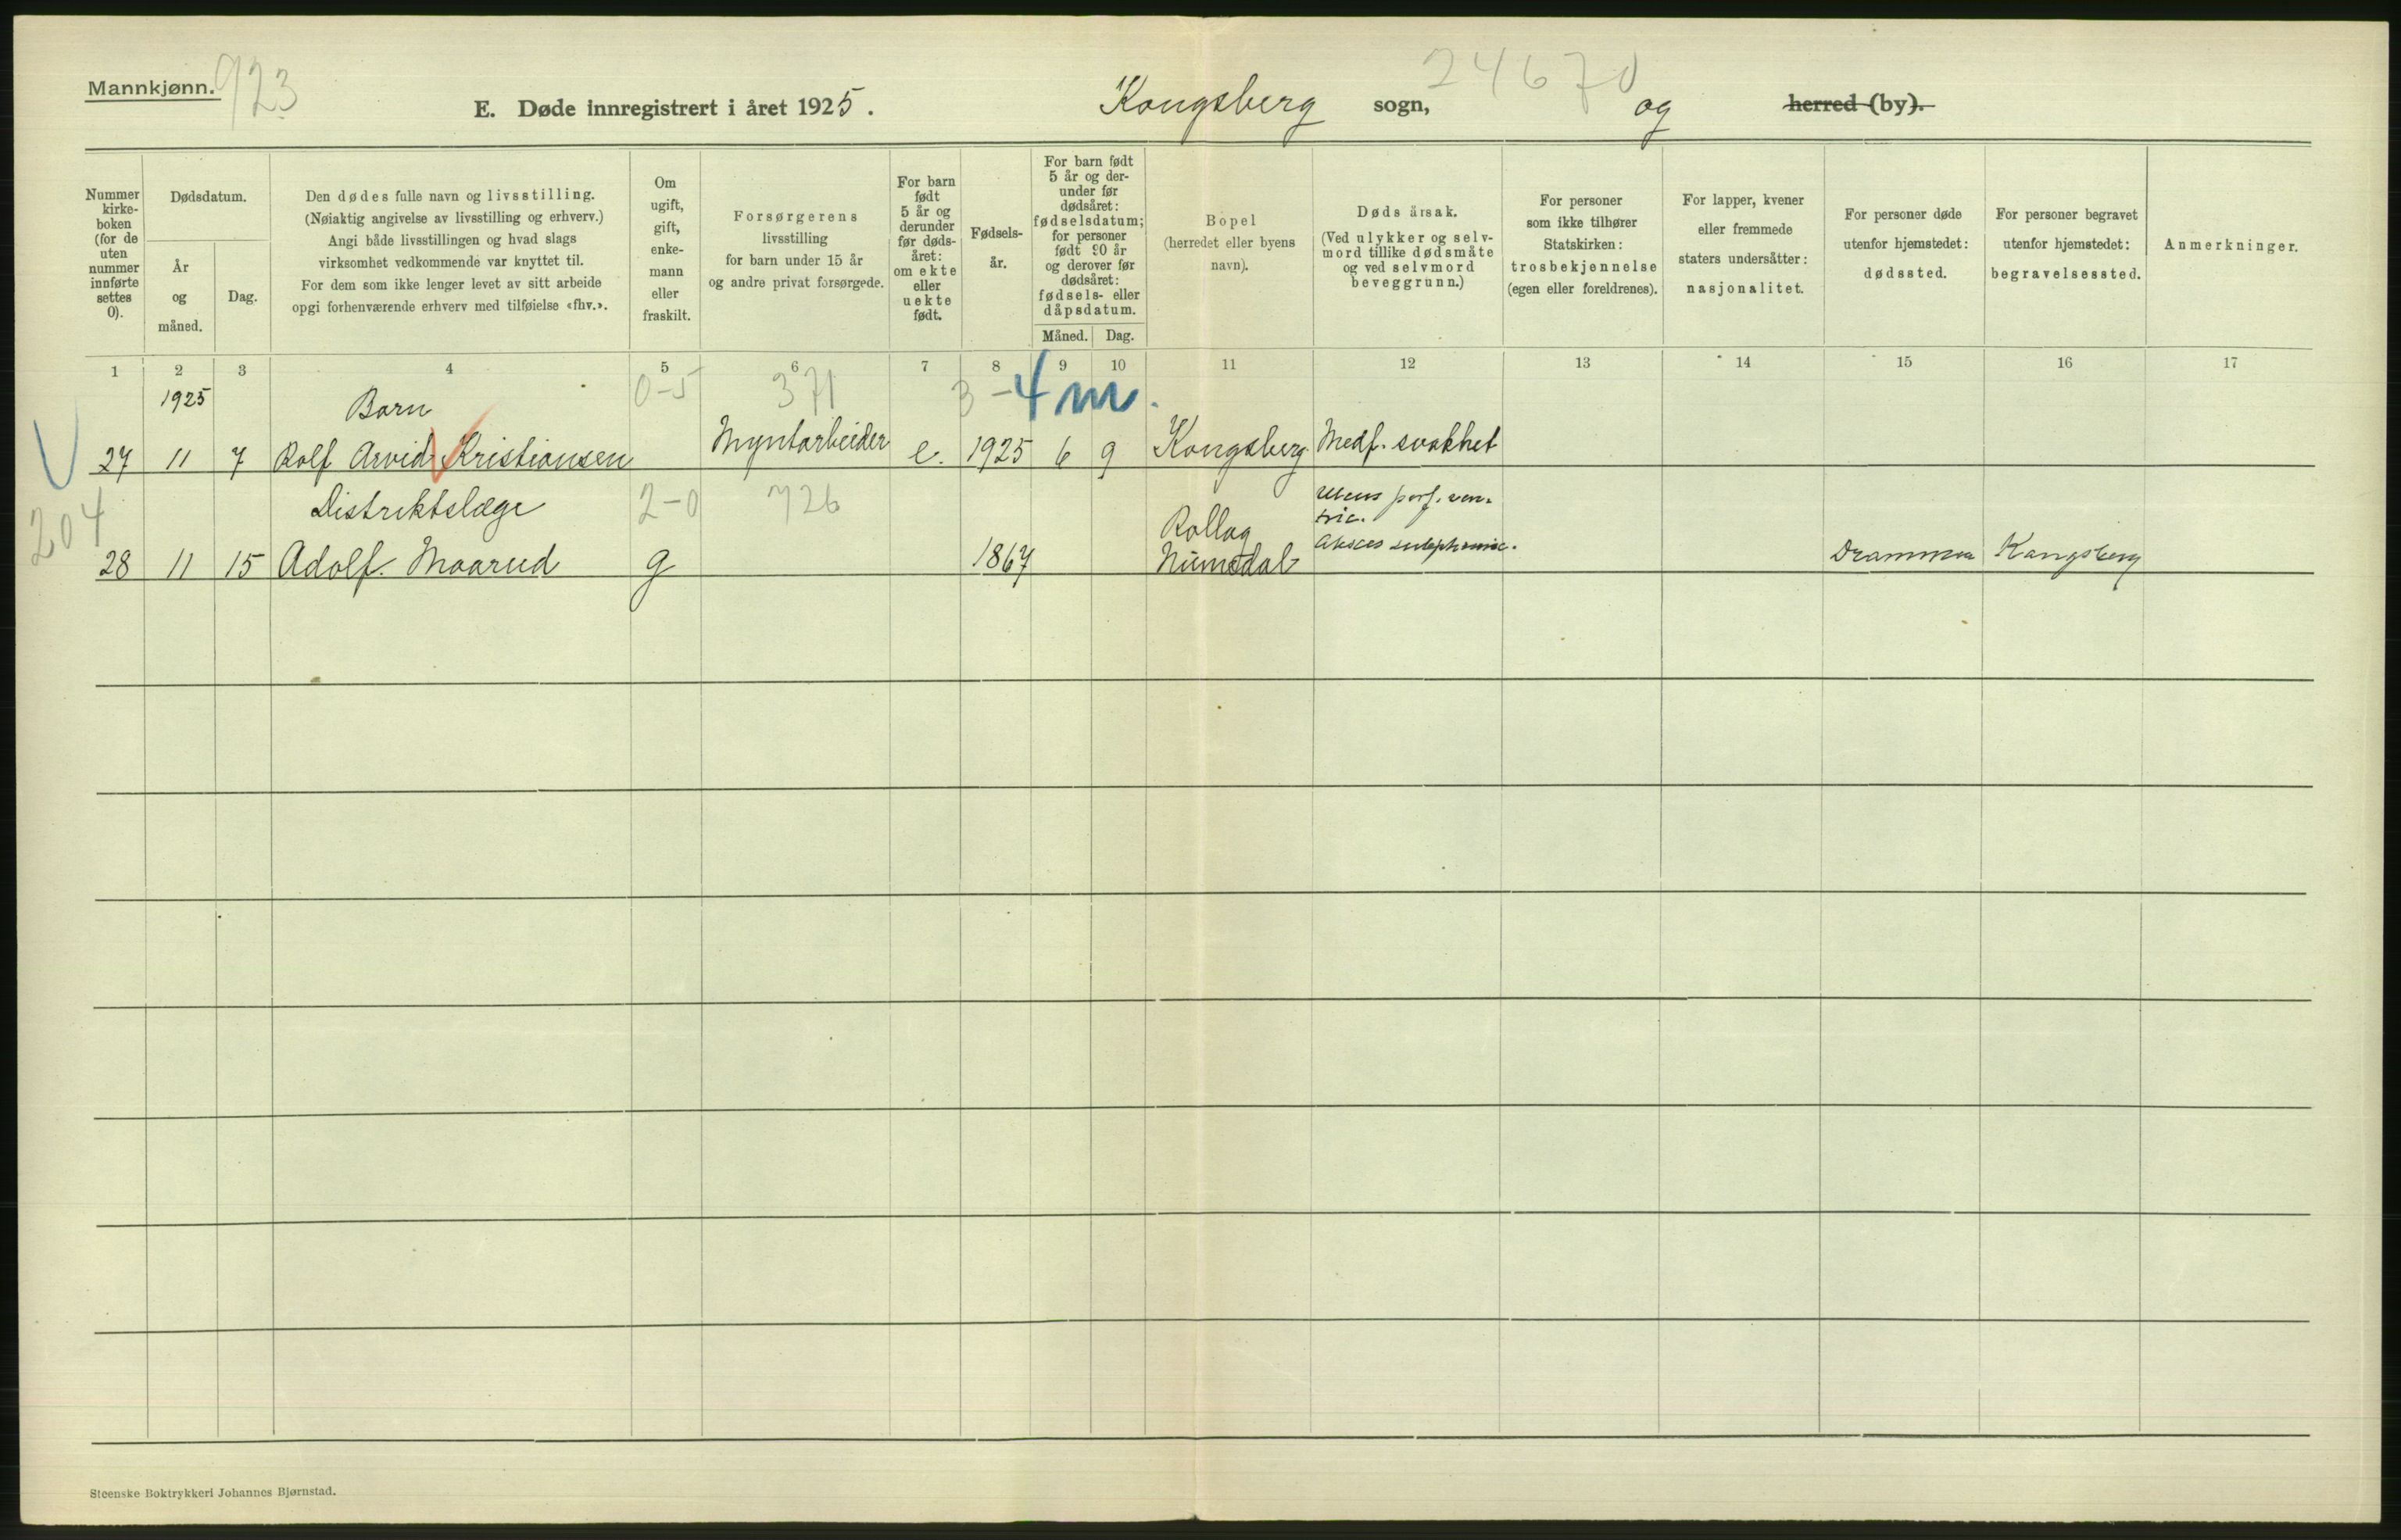 Mannkjønn. 923
24670
E. Døde innregistrert i året 1925. Kongsberg sogn, og herred (by).
Nummer kirke-boken (for de uten nummer innførte settes 0).
Dødsdatum.
År og måned.
Dag.
Den dødes fulle navn og livsstilling.
(Nøiaktig angivelse av livsstilling og erhverv.)
Angi både livsstillingen og hvad slags
virksomhet vedkommende var knyttet til.
For dem som ikke lenger levet av sitt arbeide
opgi forhenværende erhverv med tilføielse «fhv.».
Om ugift, gift, enke-mann eller fraskilt.
Forsørgerens
livsstilling
for barn under 15 år
og andre privat forsørgede.
For barn født 5 år og derunder før døds-året: om ekte eller uekte født.
Fødsels-år.
For barn født
5 år og der-
under før
dødsåret:
fødselsdatum;
for personer
født 20 år
og derover før
dødsåret:
fødsels- eller
dåpsdatum.
Måned. Dag.
Bopel
(herredet eller byens
navn).
Døds årsak.
(Ved ulykker og selv-
mord tillike dødsmåte
og ved selvmord
beveggrunn.)
For personer
som ikke tilhører
Statskirken:
trosbekjennelse
(egen eller foreldrenes).
For lapper, kvener
eller fremmede
staters undersåtter:
nasjonalitet.
For personer døde
utenfor hjemstedet:
dødssted.
For personer begravet
utenfor hjemstedet:
begravelsessted.
Anmerkninger.
1 2 3 4 5 6 7 8 9 10 11 12 13 14 15 16 17
1925 Barn 0-5 371 3-4 m.
27 11 7 Rolf Arvid Kristiansen Myntarbeider e. 1925 6 9 Kongsberg Medf. svakhet
204 Distriktslæge 2-0 726 Rollag Ulcus perf. ven-
tric.
28 11 15 Adolf Maarud g 1867 Numedal Absces subphrenic. Drammen Kongsberg
Steenske Boktrykkeri Johannes Bjørnstad.